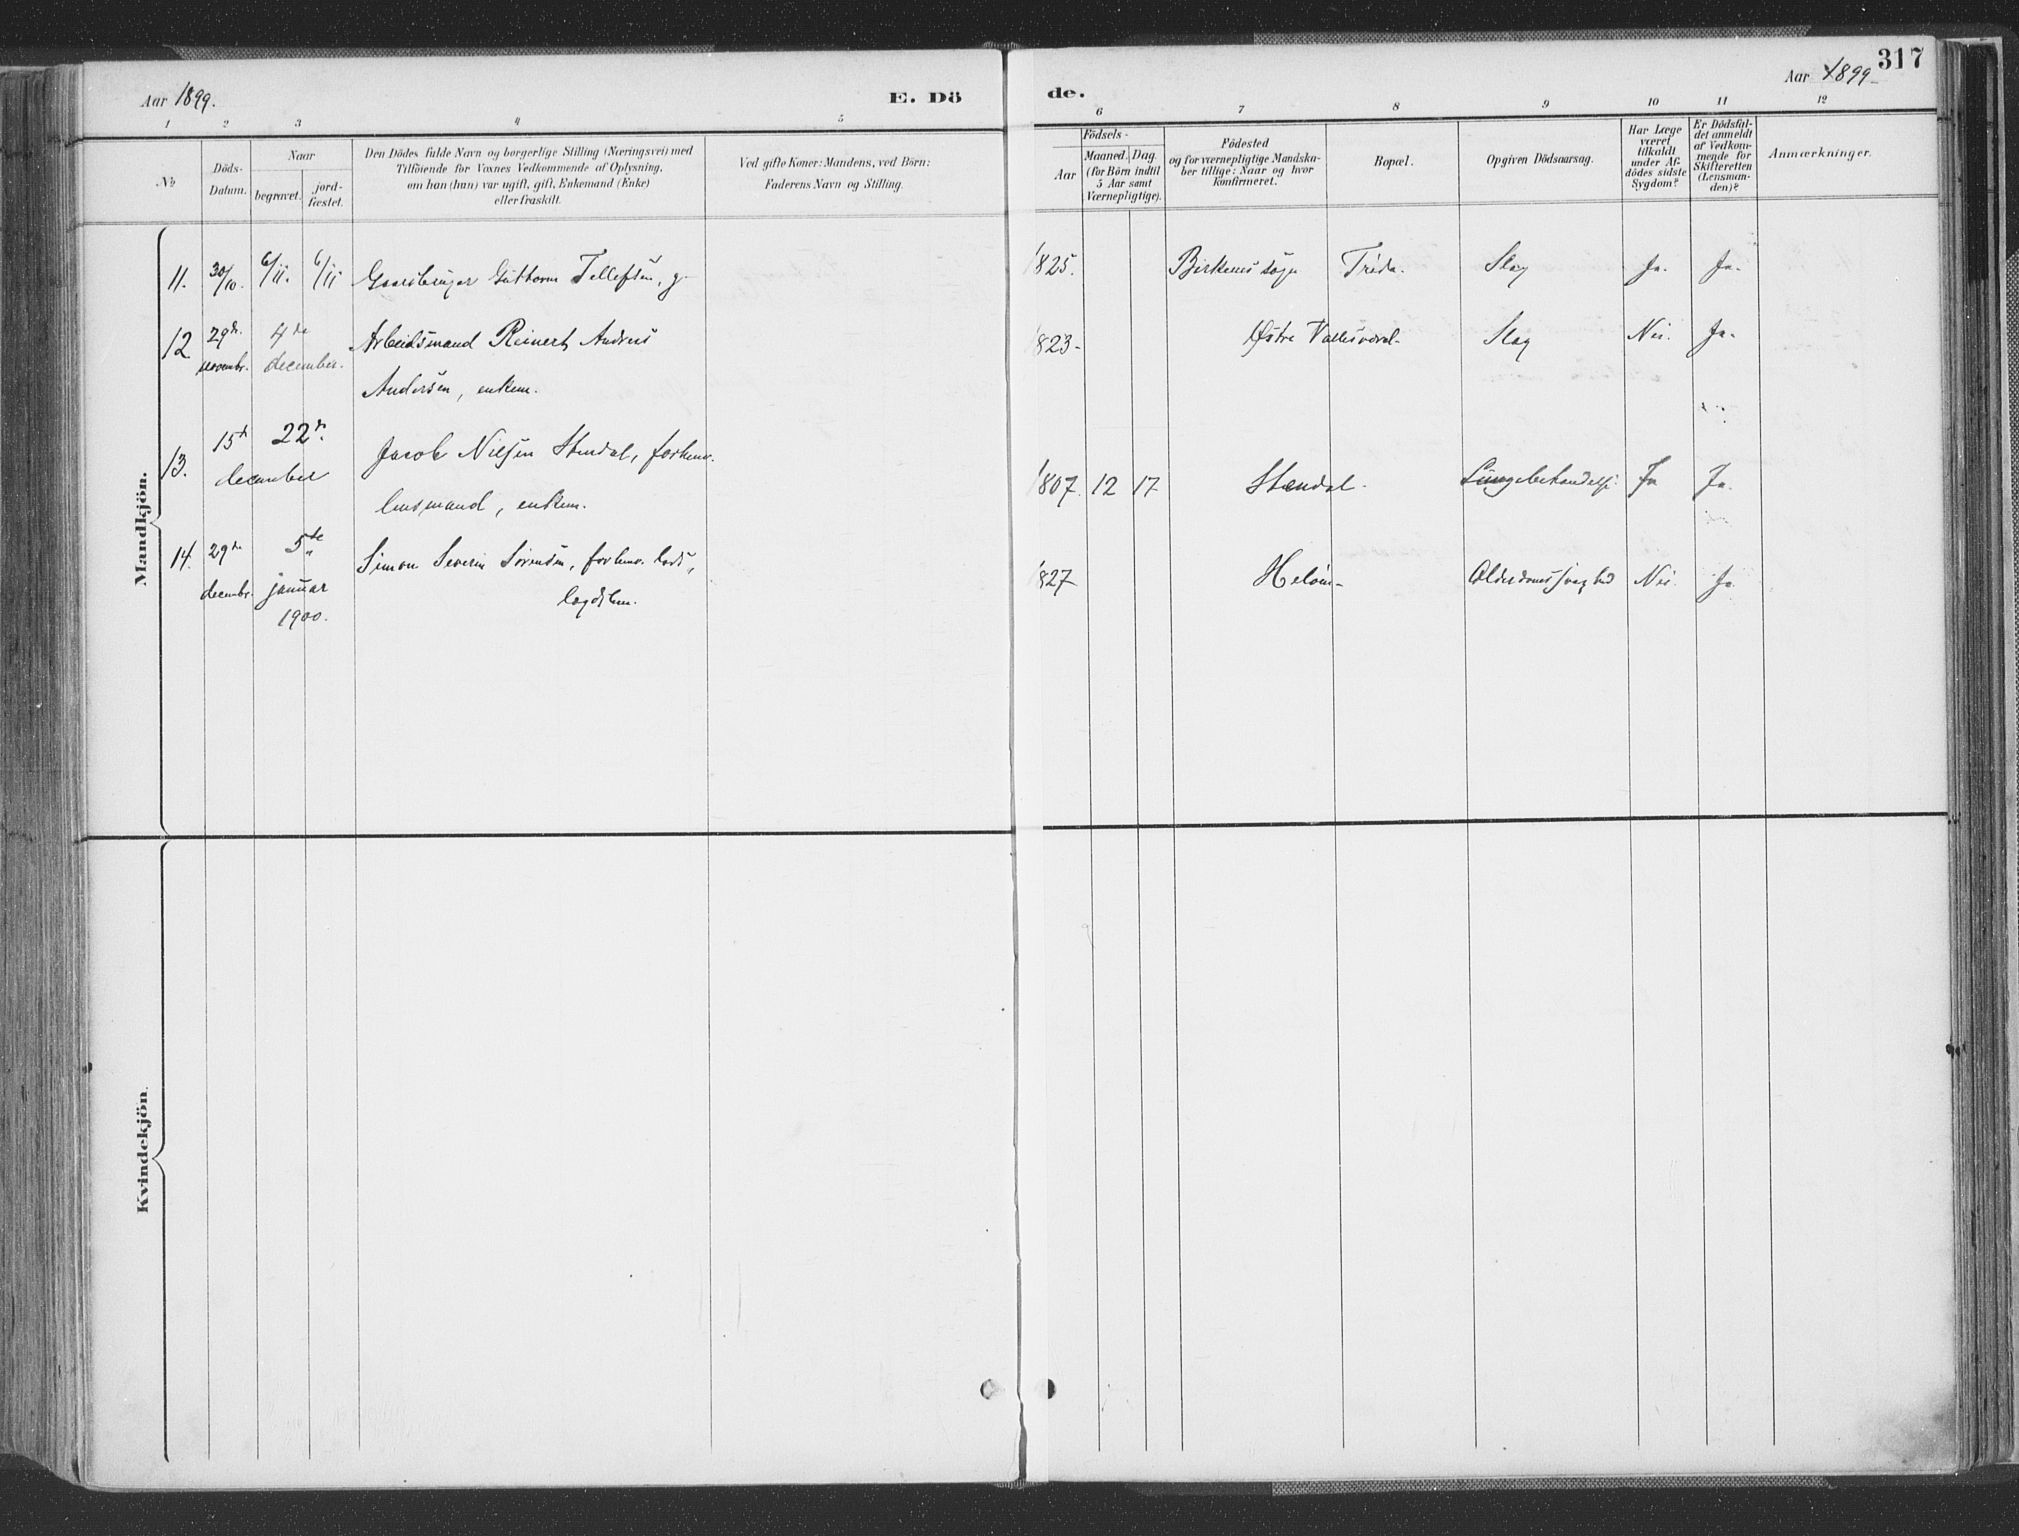 317
Aar 1899.
E. Dö
de.
Aar 1899
1 2 3 4 5
6 7 8 9 10 11 12
No
Döds-
Datum.
Naar
begravet.
jord-
fæstet.
Den Dödes fulde Navn og borgerlige Stilling (Næringsvei) med
Tilföiende for Voxnes Vedkommende af Oplysning,
om han (hun) var ugift, gift, Enkemand (Enke)
eller fraskilt.
Ved gifte Koner: Mandens, ved Börn:
Faderens Navn og Stilling.
Födsels-
Aar
Maaned. Dag.
(for Börn indtil
5 Aar samt
Værnepligtige).
Födested
og for værnepligtige Mandska-
ber tillige: Naar og hvor
konfirmeret.
Bopæl.
Opgiven Dödsaarsag.
Har Læge
været
tilkaldt
under Af-
dödes sidste
Sygdom?
Er Dödsfal-
det anmeldt
af Vedkom-
mende for
Skifteretten
(Lensman-
den)?
Anmærkninger.
Mandkjön.
11. 30/10. 6/11. 6/11 Gaardbruger Guttorm Tellefsen, g. 1825. Birkenes sogn Slag Ja. Ja.
12 29de novembr. 4de december. Arbeidsmand Reinert Andreas
Andersen, enkem. 1823 Østre Slag Nei. Ja.
13. 15de 22de december Jacob Nielsen Stendal, forhenv.
lensmand, enkem. 1807. 12 17 Stendal. Ja Ja.
14. 29de decembr. 5te januar 1900. Simon Severin Sørensen, forhenv. lods,
lægdslem. 1827 Alderdomssvaghed Nei. Ja
Kvindekjön.